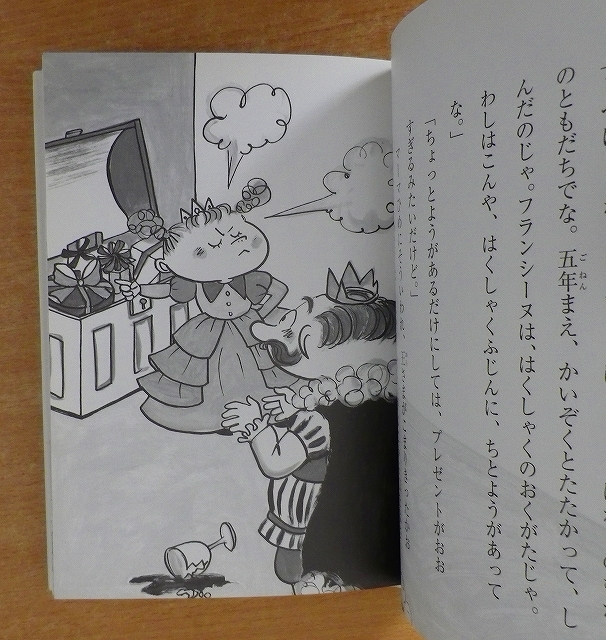 のともだちでな。五年まえ、かいぞくとたたかって、し
ごねん
んだのじゃ。フランシーヌは、はくしゃくのおくがたじゃ。
わしはこんや、はくしゃくふじんに、ちとようがあって
な。」
「ちょっとようがあるだけにしては、プレゼントがおお
すぎるみたいだけど。」